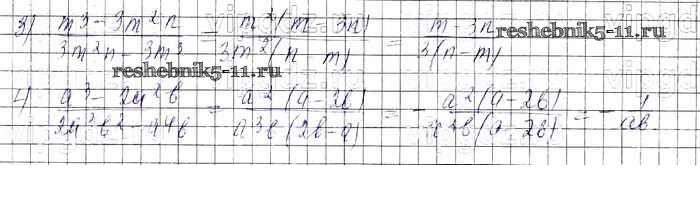 3) (m³ - 3m²n)/(3m²n - 3m³) = m²(m - 3n)/3m²(n - m) = (m - 3n)/3(n - m)
reshebnik5-11.ru
reshebnik5-11.ru
4) (a³ - 2a²b)/(2a³b² - a⁴b) = a²(a - 2b)/a³b(2b - a) = - a²(a - 2b)/a³b(a - 2b) = - 1/ab